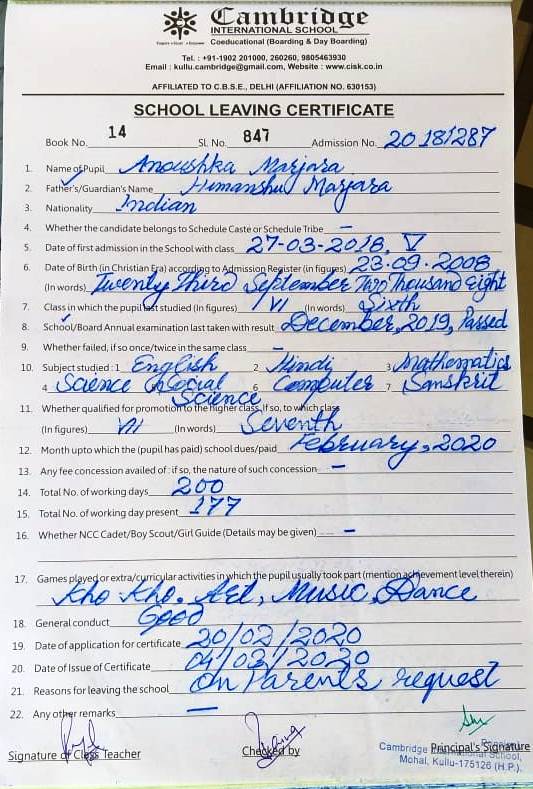 Cambridge
INTERNATIONAL SCHOOL
Coeducational (Boarding & Day Boarding)
Tel. : +91-1902 201000, 260260, 9805463930
Email : kullu.cambridge@gmail.com, Website : www.cisk.co.in
AFFILIATED TO C.B.S.E., DELHI (AFFILIATION NO. 630153)
SCHOOL LEAVING CERTIFICATE
Book No. 14 Sl. No. 847 Admission No. 2018/287
1. Name of Pupil Anoushka Marjara
2. Father's/Guardian's Name Himanshu Marjara
3. Nationality Indian
4. Whether the candidate belongs to Schedule Caste or Schedule Tribe –
5. Date of first admission in the School with class 27-03-2018, V
6. Date of Birth (in Christian Era) according to Admission Register (in figures) 23-09-2008
(In words) Twenty Third September Two Thousand Eight
7. Class in which the pupil last studied (In figures) VI (In words) Sixth
8. School/Board Annual examination last taken with result December, 2019, Passed
9. Whether failed, if so once/twice in the same class –
10. Subject studied : 1 English 2 Hindi 3 Mathematics
4 Science 5 Social Science 6 Computer 7 Sanskrit
11. Whether qualified for promotion to the higher class, If so, to which class
(In figures) VII (In words) Seventh
12. Month upto which the (pupil has paid) school dues/paid February, 2020
13. Any fee concession availed of : if so, the nature of such concession –
14. Total No. of working days 200
15. Total No. of working day present 177
16. Whether NCC Cadet/Boy Scout/Girl Guide (Details may be given) –
17. Games played or extra/curricular activities in which the pupil usually took part (mention achievement level therein)
Kho Kho. Art, Music, Dance
18. General conduct Good
19. Date of application for certificate 20/02/2020
20. Date of Issue of Certificate 04/03/2020
21. Reasons for leaving the school On Parents request
22. Any other remarks —
Signature of Class Teacher Checked by Principal's Signature
Cambridge International School,
Mohal, Kullu-175126 (H.P.).